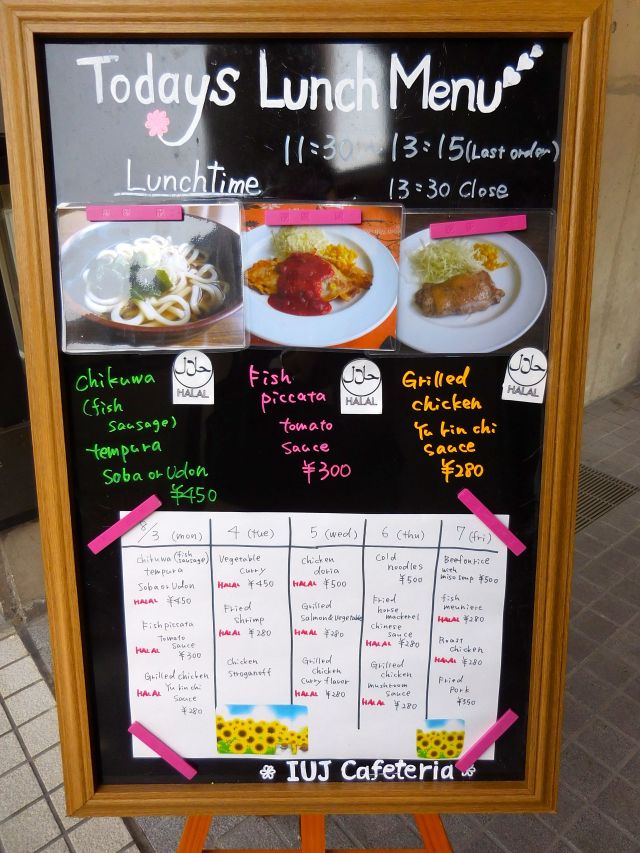 Todays Lunch Menu
11:30 ~ 13:15 (Last order)
Lunchtime
13:30 Close
Chikuwa
(fish
sausage)
tempura
Soba or Udon
¥450
حلال
HALAL
Fish
piccata
tomato
sauce
¥300
حلال
HALAL
Grilled
chicken
Yu Rin chi
sauce
¥280
حلال
HALAL
8/3 (mon)
Chikuwa (fish
sausage)
tempura
Soba or Udon
HALAL ¥450
Fish piccata
Tomato
Sauce
HALAL
¥300
Grilled chicken
HALAL Yu Rin chi
Sauce
¥280
4 (tue)
Vegetable
curry
HALAL ¥450
Fried
shrimp
HALAL ¥280
Chicken
Stroganoff
5 (wed)
Chicken
doria
HALAL ¥500
Grilled
Salmon & Vegetable
HALAL ¥280
Grilled
chicken
Curry flavor
HALAL ¥280
6 (thu)
Cold
noodles
¥500
Fried
horse
mackerel
chinese
sauce
HALAL ¥280
Grilled
chicken
mushroom
sauce
HALAL ¥280
7 (fri)
Beef on rice
with
miso soup ¥500
fish
meuniere
HALAL
¥280
Roast
chicken
HALAL
¥280
Fried
Pork
¥350
IUJ Cafeteria